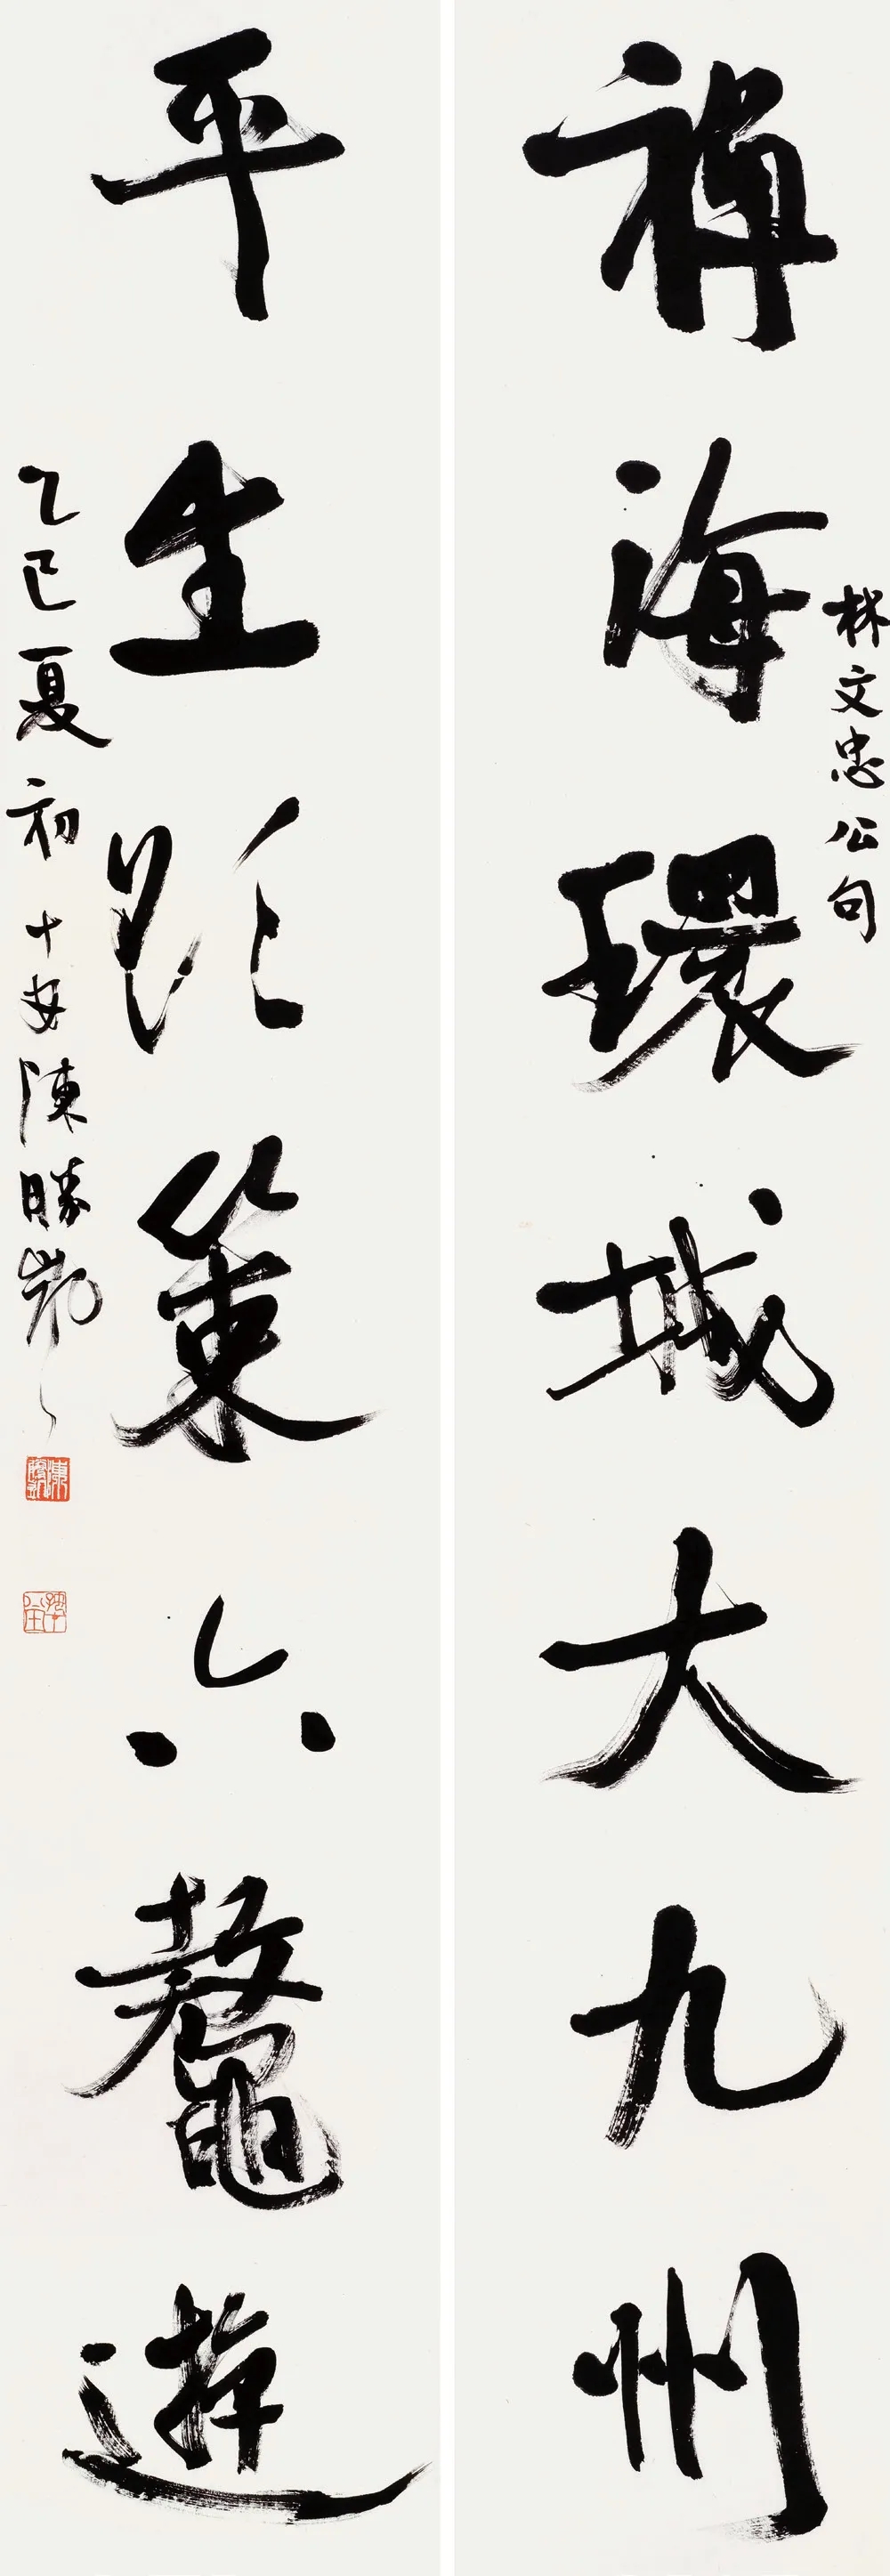 林文忠公句
裨海環城大九州
平生欲策六鼇遊
乙巳夏初十安陳勝凱